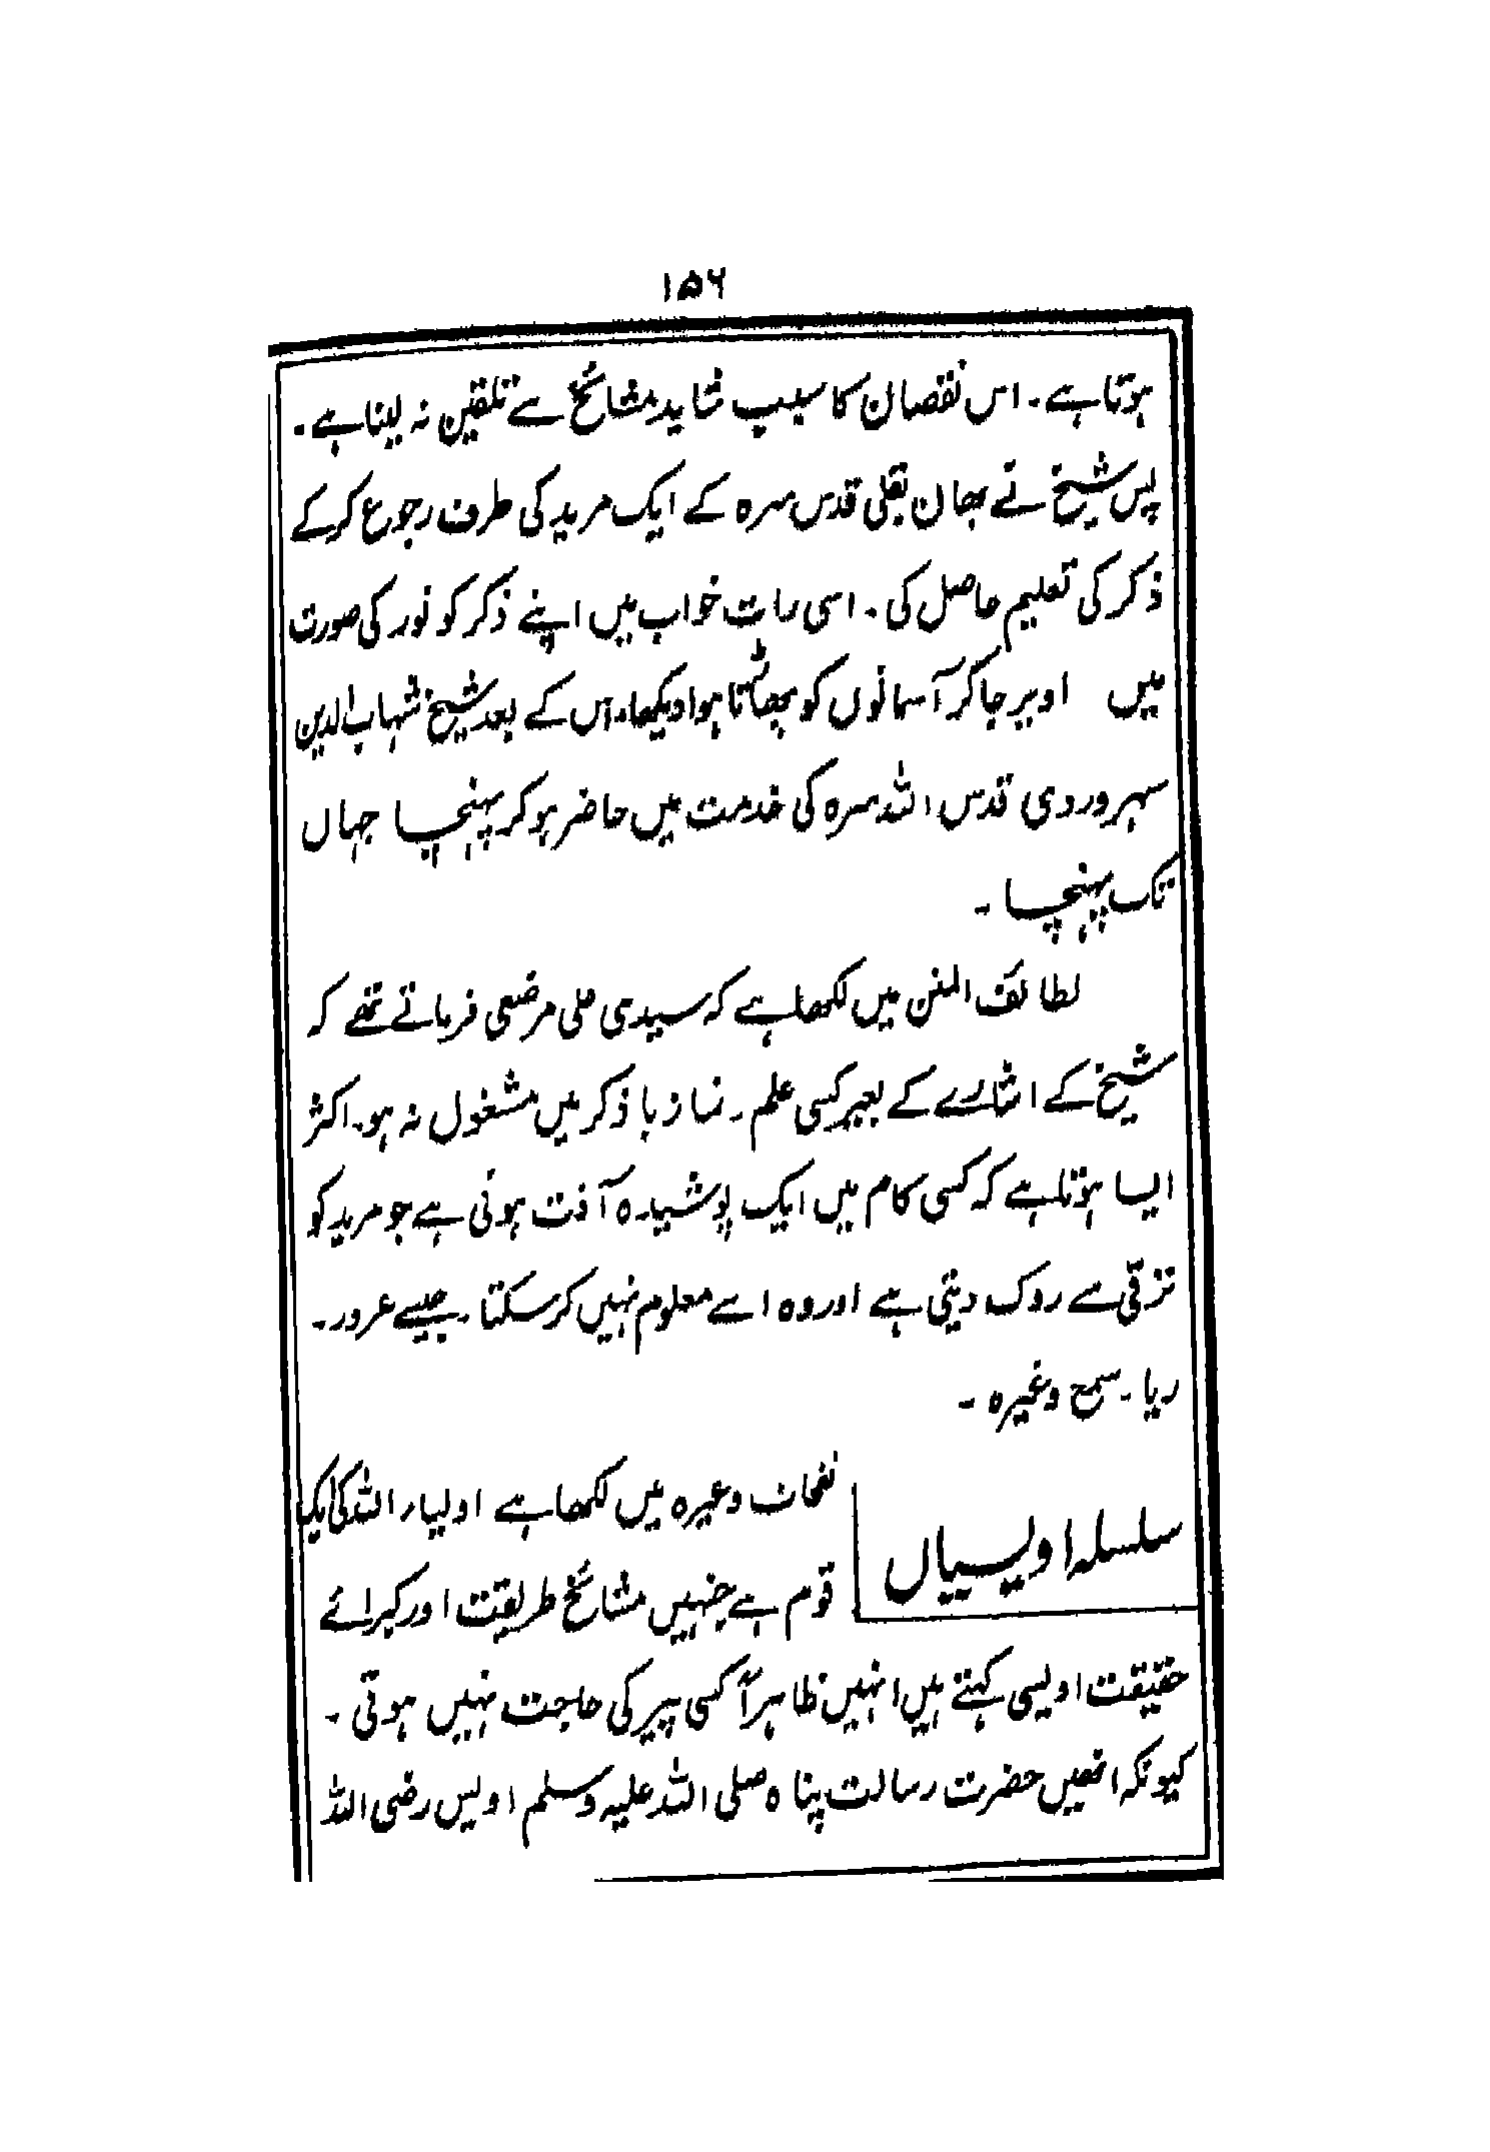 ۱۵۶
ہوتا ہے۔ اس نقصان کا سبب شاید مشائخ سے تلقین نہ لینا ہے۔
پس شیخ نے بھان بقلی قدس سرہ کے ایک مرید کی طرف رجوع کر کے
ذکر کی تعلیم حاصل کی۔ اسی رات خواب میں اپنے ذکر کو نور کی صورت
میں اوپر جا کر آسمانوں کو پھاڑتا ہوا دیکھا۔ اس کے بعد شیخ شہاب الدین
سہروردی قدس اللہ سرہ کی خدمت میں حاضر ہو کر پہنچا جہاں
تک پہنچا۔
لطائف المنن میں لکھا ہے کہ سیدی علی مرضعی فرماتے تھے کہ
شیخ کے اشارے کے بعیر کسی علم۔ نماز یا ذکر میں مشغول نہ ہو۔ اکثر
ایسا ہوتا ہے کہ کسی کام میں ایک پوشیدہ آفت ہوتی ہے جو مرید کو
ترقی سے روک دیتی ہے اور وہ اسے معلوم نہیں کر سکتا۔ جیسے غرور۔
ریا۔ سمع وغیرہ۔
سلسلہ اویسیاں
نفحات وغیرہ میں لکھا ہے اولیاء اللہ کی ایک
قوم ہے جنہیں مشائخ طریقت اور کبرائے
حقیقت اویسی کہتے ہیں انہیں ظاہراً کسی پیر کی حاجت نہیں ہوتی۔
کیونکہ انھیں حضرت رسالت پناہ صلی اللہ علیہ وسلم اویس رضی اللہ